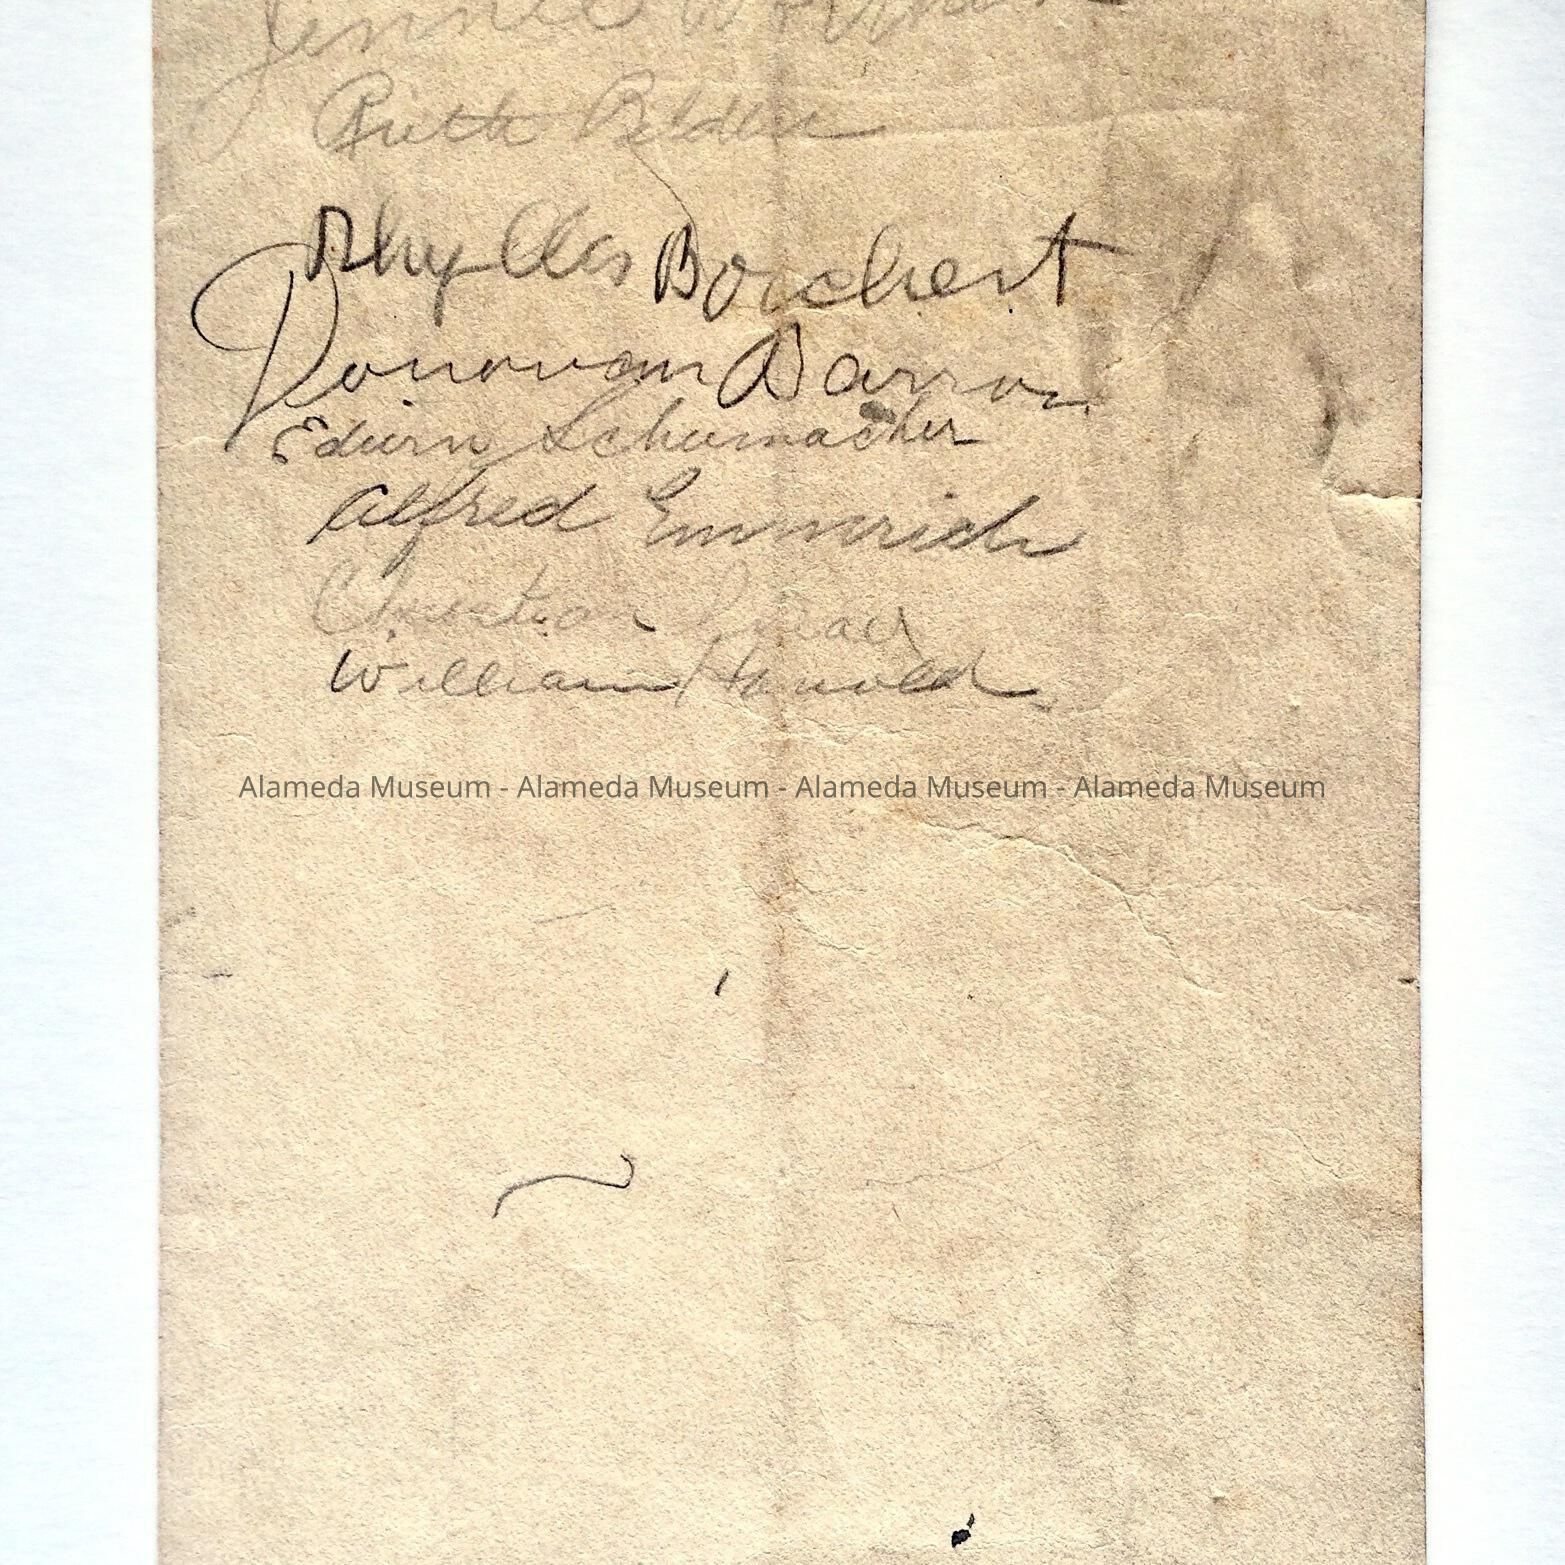 Jennie
Ruth Belden
Phyllis Borchert
Donovan Barron
Edwin Schumacher
Alfred Emmrich
Christian
William Harold
Alameda Museum - Alameda Museum - Alameda Museum - Alameda Museum